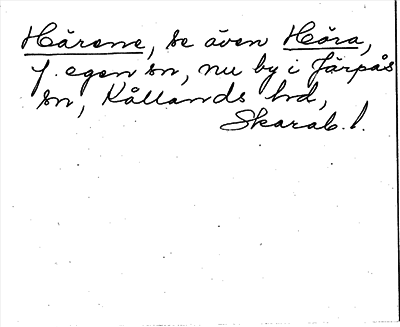 Härene, se även Höra,
f. egen sn, nu by i Järpås
sn, Kållands hd,
Skarab. l.